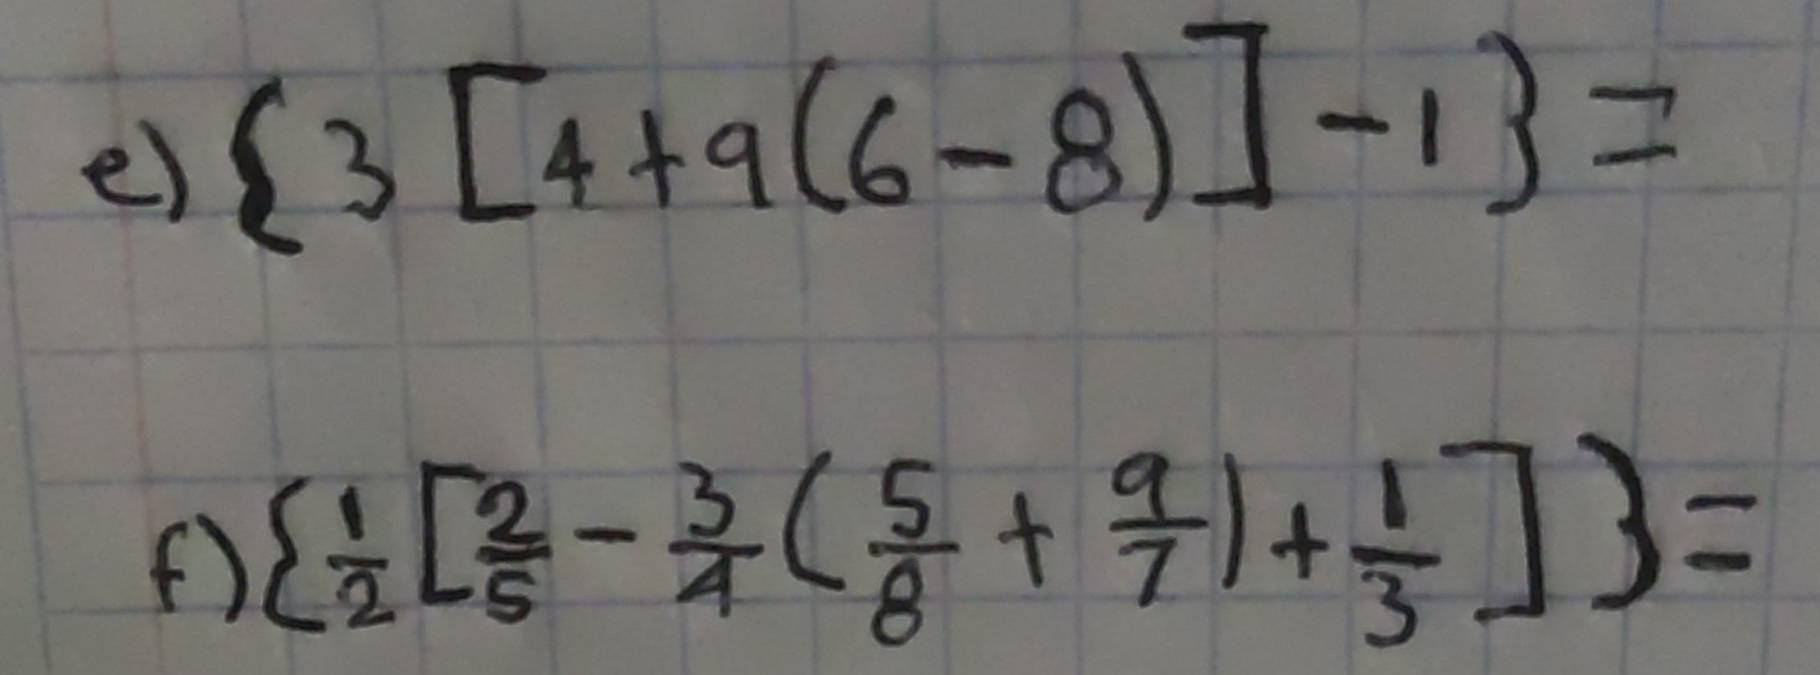 e) {3 [4+9(6-8)] -1} =
f) {1/2 [2/5 - 3/4 (5/8 + 9/7) + 1/3 ] } =